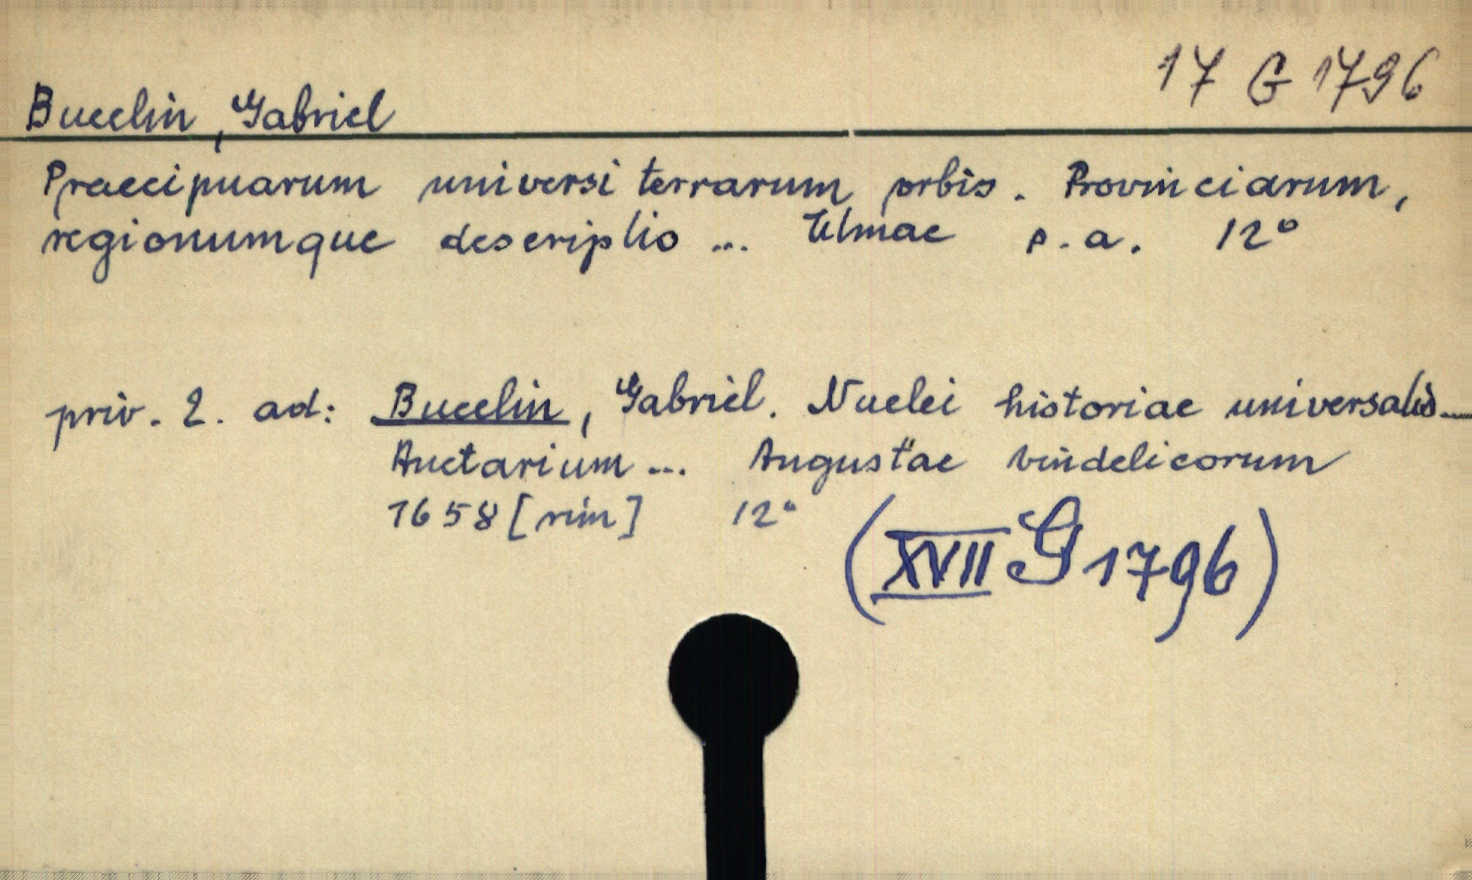 17 G 1796
Bucelin, Gabriel
Praecipuarum universi terrarum orbis. Provinciarum,
regionumque descriptio ... Ulmae s.a. 12°
priv. 2. ad: Bucelin, Gabriel. Nuclei historiae universalis...
Auctarium ... Augustae vindelicorum
1658 [rim] 12°
(XVII G 1796)